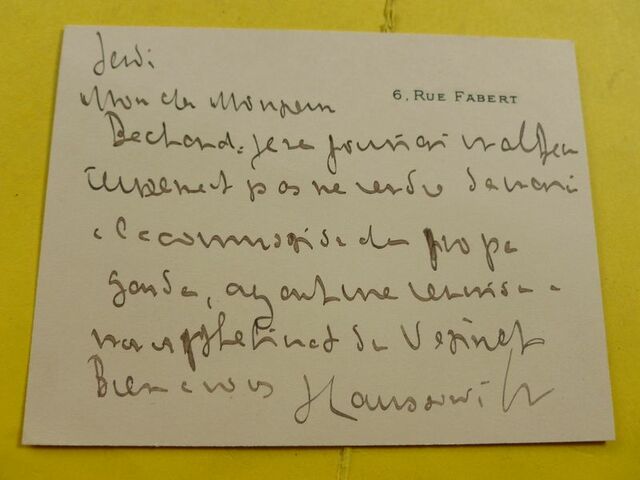 Jeudi
6, RUE FABERT
Mon cher Monsieur
Bechard, je ne pourrai malheu
reusement pas me rendre demain
à la commission de propa
gande, ayant une réunion à
du Vesinet
Bien à vous